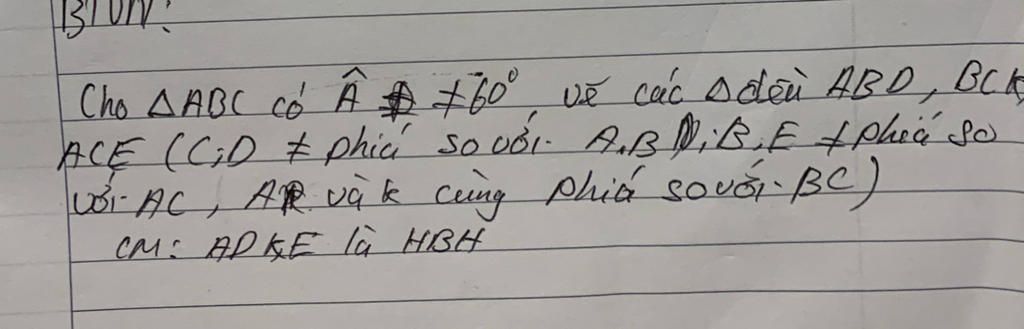 BTVN:
Cho △ABC có Â ≠ 60°, vẽ các △ đều ABD, BCK,
ACE (C;D ≠ phía so với AB; B;E ≠ phía so
với AC, A và K cùng phía so với BC)
CM: ADKE là HBH